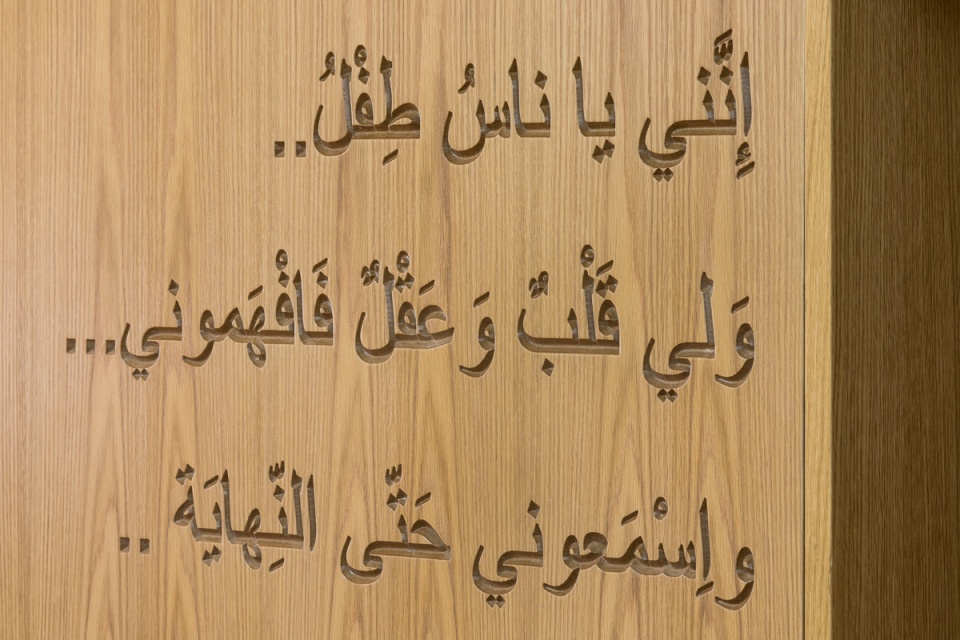 إِنَّني يا ناسُ طِفْلُ..
وَلي قَلْبٌ وَ عَقْلٌ فَافْهَموني...
واِسْمَعوني حَتّى النِّهايَة ..